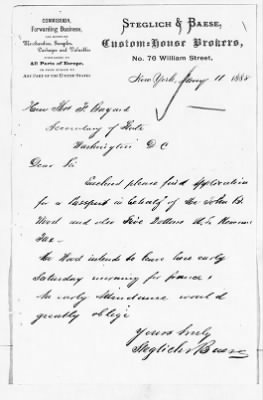 COMMISSION,
Forwarding Business,
Merchandise, Samples,
Packages and Valuables
All Parts of Europe,
ANY PART OF THE UNITED STATES
STEGLICH & BAESE,
Custom-House Brokers,
No. 76 William Street,
New York, Jany 11 1888
Hon Thos F. Bayard
Secretary of State
Washington D C
Dear Sir
Enclosed please find Application
for a Passport in behalf of Mr John B.
Wood and also Five Dollars U.S. Revenue
Tax
Mr Wood intends to leave here early
Saturday morning for France &
An early Attendance would
greatly oblige
Yours truly
Steglich & Baese